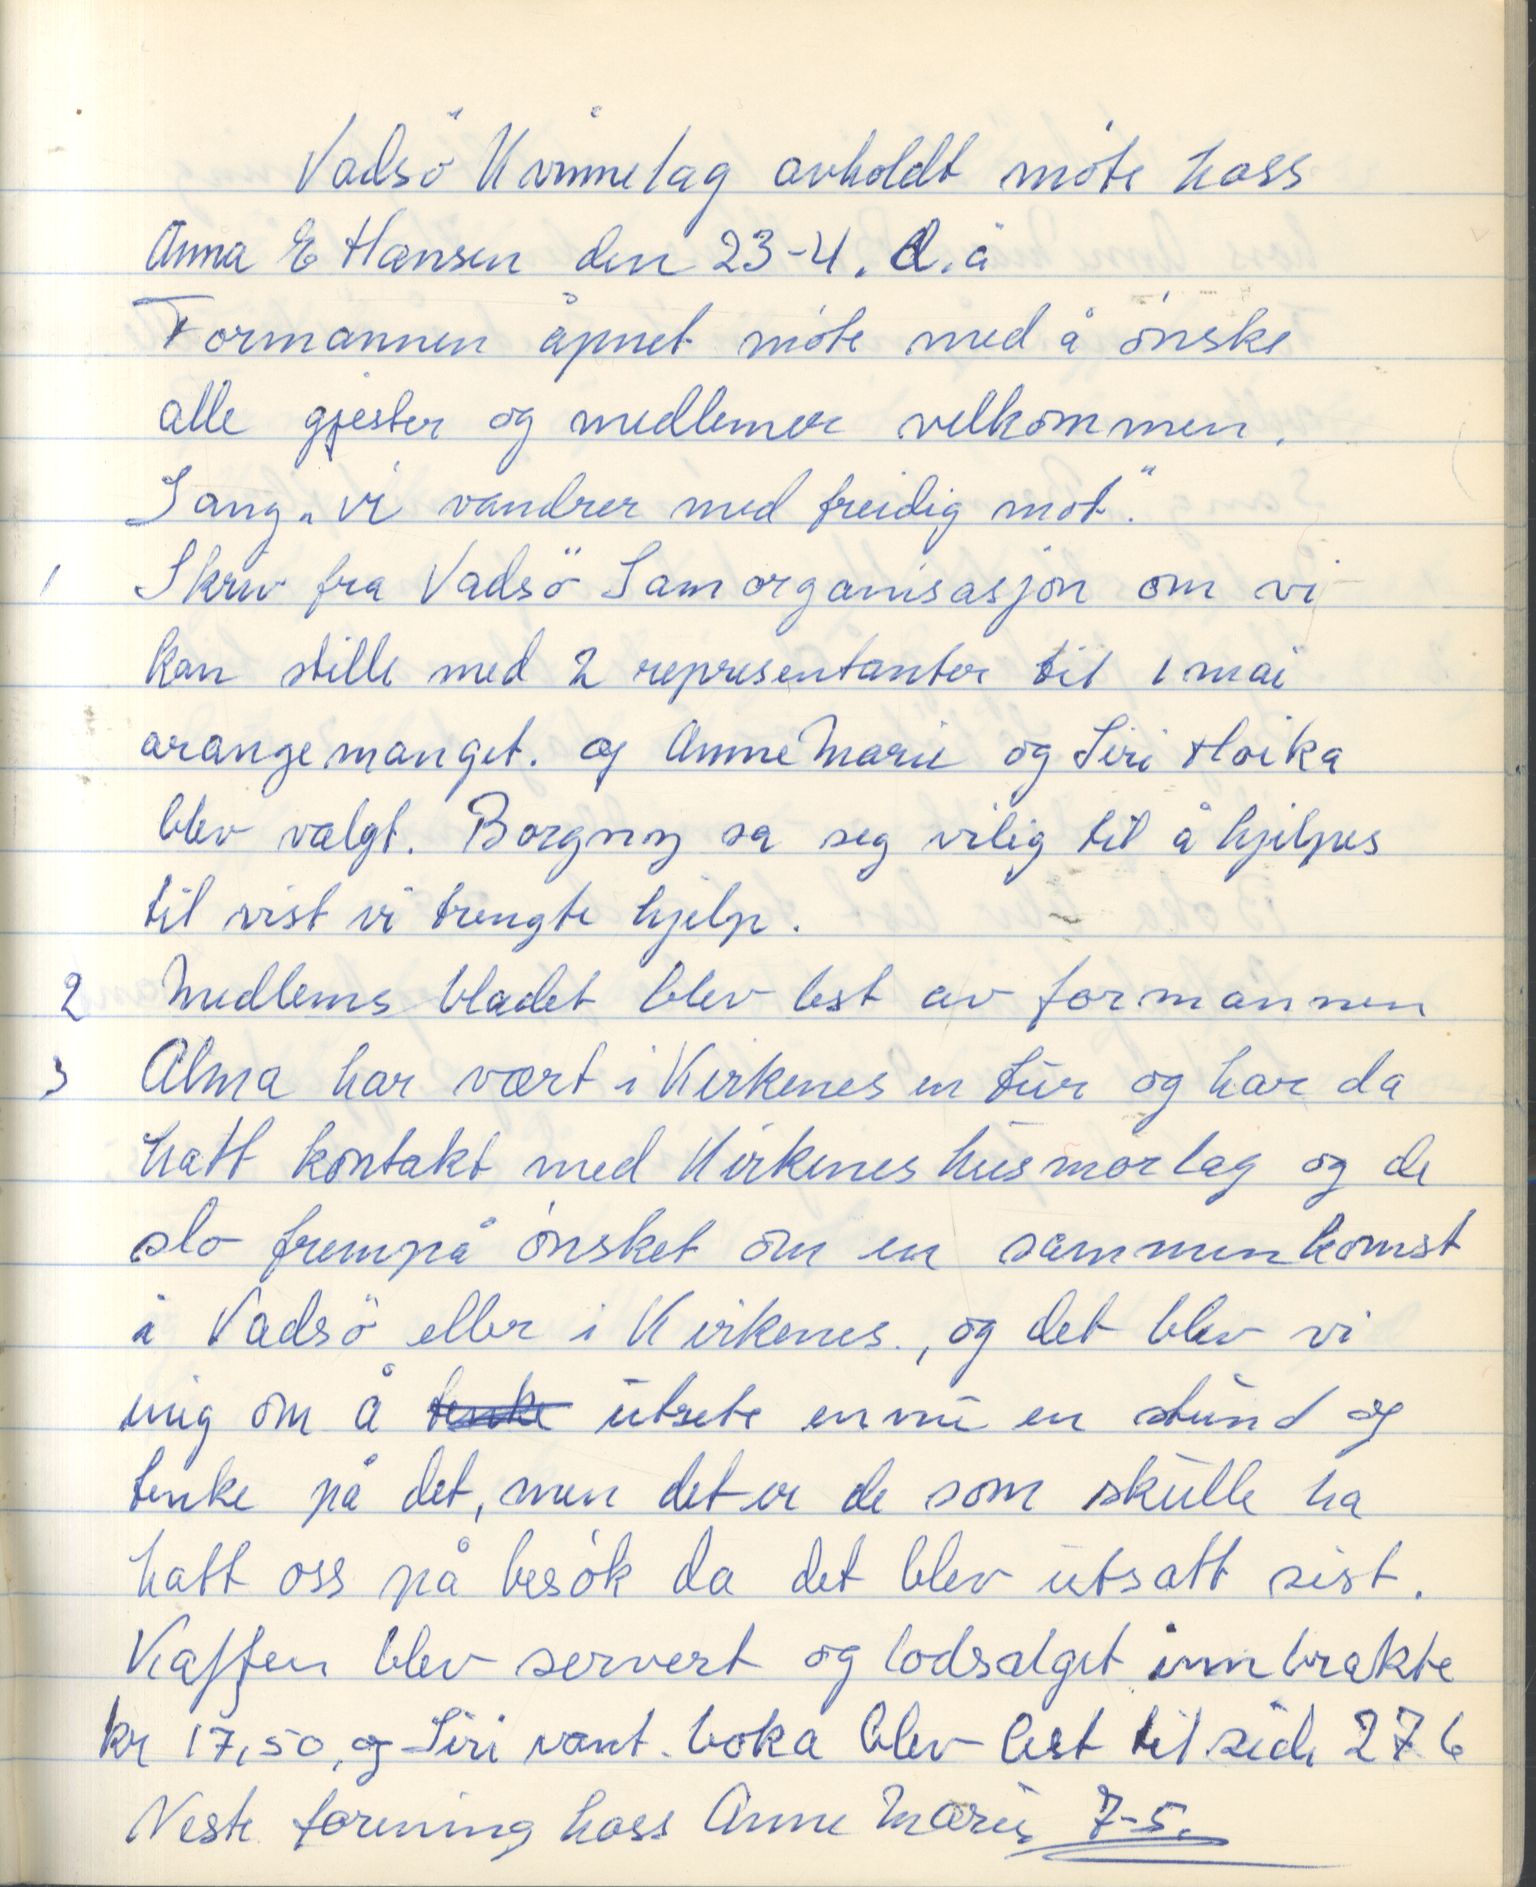 Vadsö Kvinnelag avholdt möte hoss
Anna E Hansen den 23-4. d.å
Formannen åpnet möte med å önske
alle gjester og medlemer velkommen.
Sang „vi vandrer med freidig mot."
1 Skriv fra Vadsö Samorganisasjon om vi
kan stille med 2 representanter til 1 mai
arangemanget. og Anne Marie og Siri Hoika
blev valgt. Borgny sa seg vilig til å hjelpes
til vist vi trengte hjelp.
2 Medlems bladet blev lest av formannen
3 Alma har vært i Kirkenes en tur og har da
hatt kontakt med Kirkenes husmorlag og de
slo frempå önsket om en sammenkomst
i Vadsö eller i Kirkenes., og det blev vi
enig om å tenke utsete ennu en stund og
tenke på det, men det er de som skulle ha
hatt oss på besök da det blev utsatt sist.
Kaffen blev servert og lodsalget innbrakte
kr 17,50, og Siri vant. boka blev lest til side 276
Neste forening hoss Anne Marie 7-5.